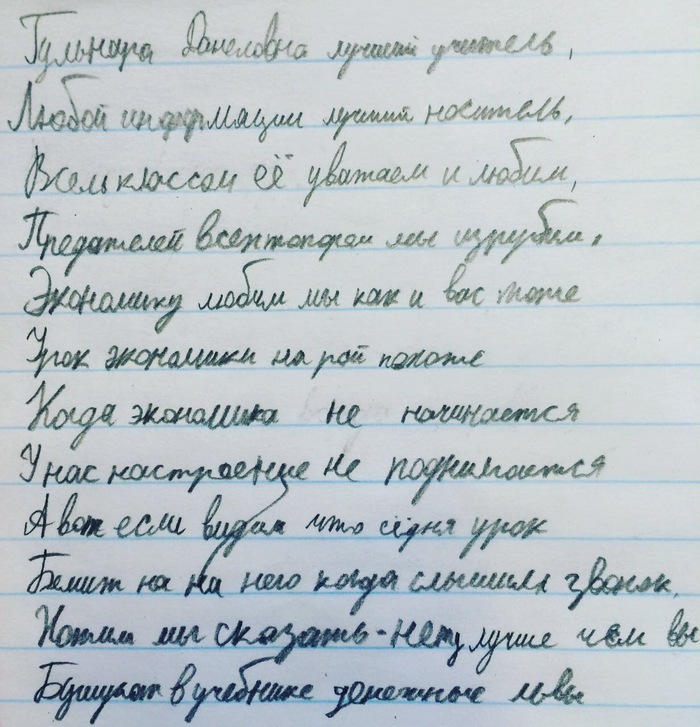 Гульнара Данеловна лучший учитель,
Любой информации лучший носитель,
Всем классом её уважаем и любим,
Предателей всех топором мы изрубим,
Экономику любим мы как и вас тоже
Урок экономики на рай похоже
Когда экономика не начинается
У нас настроение не поднимается
А вот если видим что сёдня урок
Бежит на на него когда слышим звонок,
Хотим мы сказать - нету лучше чем вы
Бушуют в учебнике денежные львы